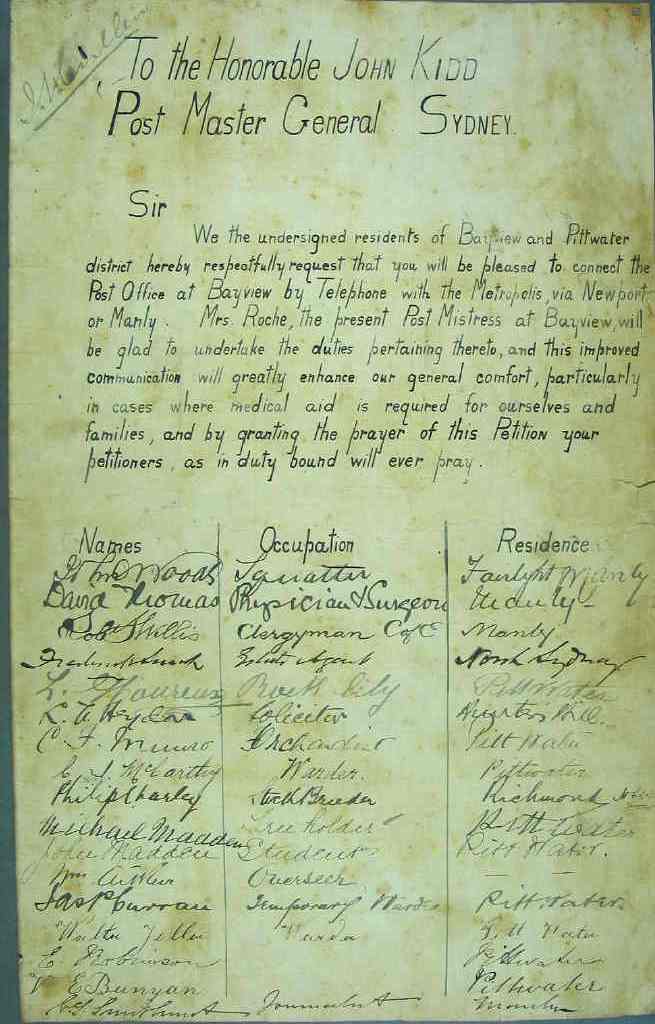 To the Honorable JOHN KIDD
Post Master General SYDNEY.
Sir
We the undersigned residents of Bayview and Pittwater
district hereby respectfully request that you will be pleased to connect the
Post Office at Bayview by Telephone with the Metropolis, via Newport
or Manly. Mrs. Roche, the present Post Mistress at Bayview, will
be glad to undertake the duties pertaining thereto, and this improved
communication will greatly enhance our general comfort, particularly
in cases where medical aid is required for ourselves and
families, and by granting the prayer of this Petition your
petitioners, as in duty bound will ever pray.
Names Occupation Residence
Woods Squatter Fairlight Manly
David Thomas Physician & Surgeon Manly
Willis Clergyman C of E Manly
Estate Agent North Sydney
Rock Lily Pittwater
Solicitor Hunters Hill
C. F. Munro Orchardist Pitt Water
C. J. McCarthy Warder. Pittwater
Philip Charley Stock Breeder Richmond
Michael Madden Freeholder Pitt Water
John Madden Student Pitt Water.
Wm Overseer
Jas P Curran Temporary Warder Pitt Water
Walter Warder Pitt Water
E Robinson Pittwater
E Bunyan Pittwater
Journalist